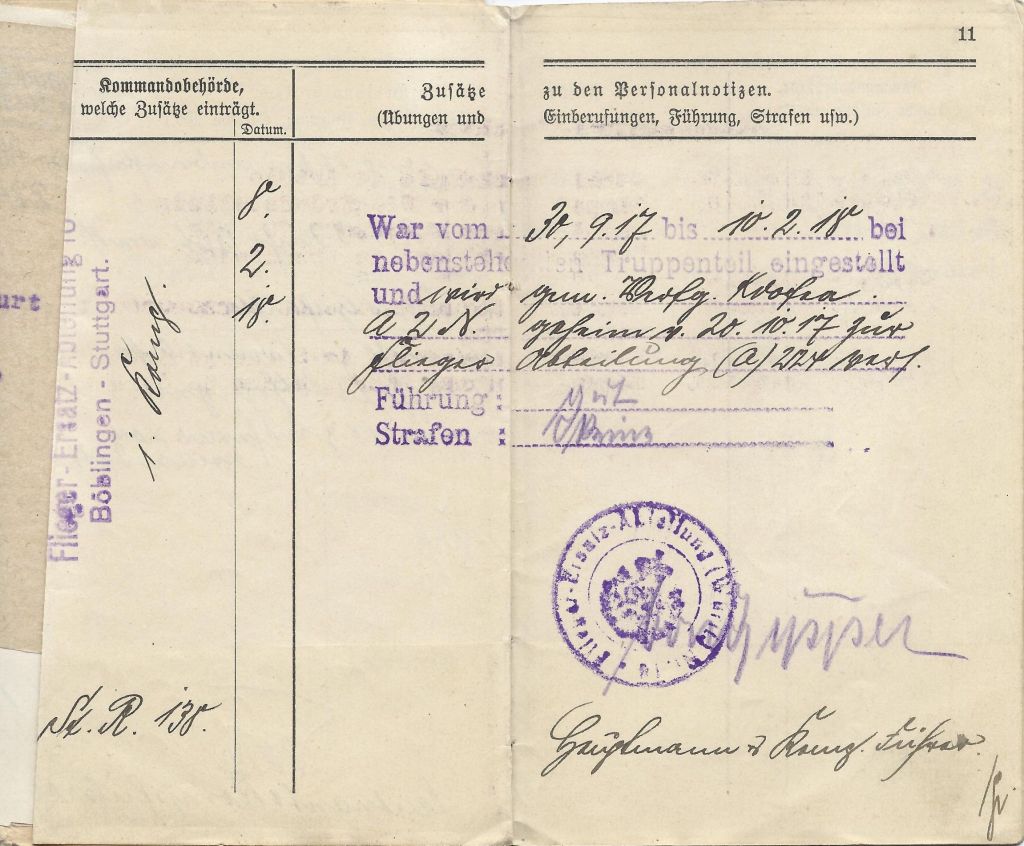 11
Kommandobehörde,
welche Zusätze einträgt.
Datum.
Zusätze zu den Personalnotizen.
(Übungen und Einberufungen, Führung, Strafen usw.)
urt
Flieger-Ersatz-Abteilung 10
Böblingen - Stuttgart.
8.
2.
18.
War vom 30.9.17 bis 10.2.18 bei
nebenstehenden Truppenteil eingestellt
und wird gem. Verfg. Kdofea.
A 2 N. geheim v. 20.10.17 zur
Flieger Abteilung (A) 224 vers.
Führung: gut
Strafen: Keine
Flieger-Ersatz-Abteilung
St. R. 138.
Hauptmann u Komp. Führer.